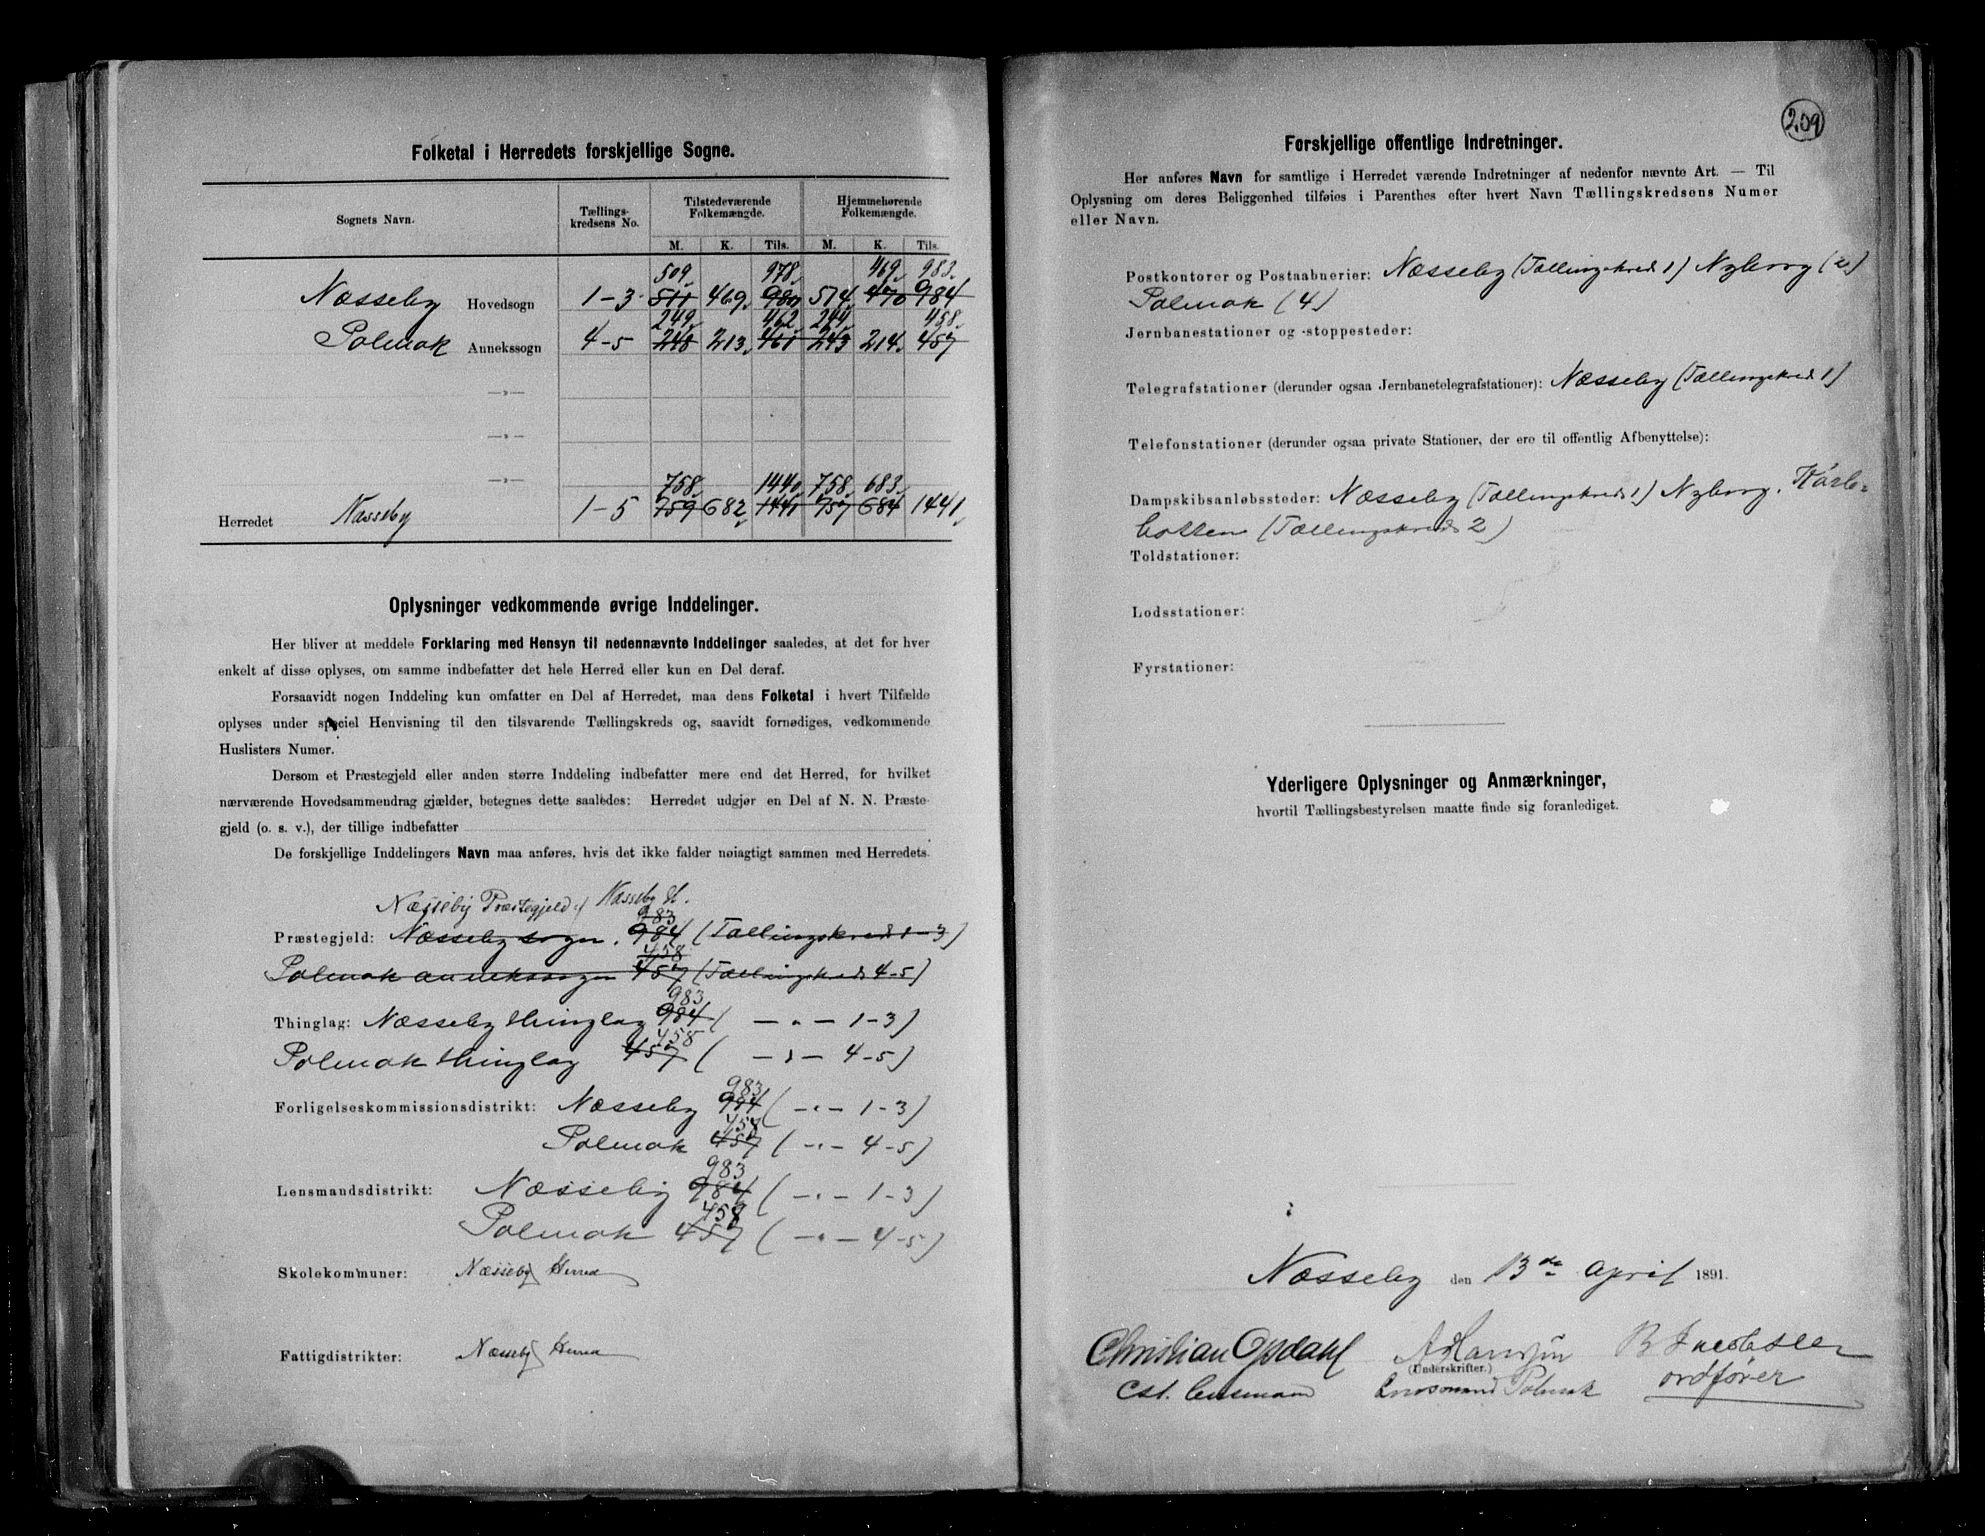 Folketal i Herredets forskjellige Sogne.
Sognets Navn. Tællings-kredsens No. Tilstedeværende Folkemængde. Hjemmehørende Folkemængde.
M. K. Tils. M. K. Tils.
509. 978. 469. 983.
Næsseby Hovedsogn 1-3 511 469. 980 514. 470 984
249. 462. 244. 458.
Polmak Annekssogn 4-5 248 213. 461 243 214. 457
—»—
—»—
—»—
758. 1440. 758. 683.
Herredet Næsseby 1-5 759 682. 1441 757 684 1441.
Oplysninger vedkommende øvrige Inddelinger.
Her bliver at meddele Forklaring med Hensyn til nedennævnte Inddelinger saaledes, at det for hver
enkelt af disse oplyses, om samme indbefatter det hele Herred eller kun en Del deraf.
Forsaavidt nogen Inddeling kun omfatter en Del af Herredet, maa dens Folketal i hvert Tilfælde
oplyses under speciel Henvisning til den tilsvarende Tællingskreds og, saavidt fornødiges, vedkommende
Huslisters Numer.
Dersom et Præstegjeld eller anden større Inddeling indbefatter mere end det Herred, for hvilket
nærværende Hovedsammendrag gjælder, betegnes dette saaledes: Herredet udgjør en Del af N. N. Præste-
gjeld (o. s. v.), der tillige indbefatter
De forskjellige Inddelingers Navn maa anføres, hvis det ikke falder nøiagtigt sammen med Herredets.
Næsseby Præstegjeld Næsseby H.
983
Præstegjeld: Næsseby sogn. 984 (Tællingskreds 1-3)
458
Polmak annekssogn 457 (Tællingskreds 4-5)
983
Thinglag: Næsseby thinglag 984 ( — „ — 1-3)
458
Polmak thinglag 457 ( — „ — 4-5)
983
Forligelseskommissionsdistrikt: Næsseby 984 ( — „ — 1-3)
458
Polmak 457 ( — „ — 4-5)
983
Lensmandsdistrikt: Næsseby 984 ( — „ — 1-3)
458
Polmak 457 ( — „ — 4-5)
Skolekommuner: Næsseby Herred
Fattigdistrikter: Næsseby Herred
209
Forskjellige offentlige Indretninger.
Her anføres Navn for samtlige i Herredet værende Indretninger af nedenfor nævnte Art. — Til
Oplysning om deres Beliggenhed tilføies i Parenthes efter hvert Navn Tællingskredsens Numer
eller Navn.
Postkontorer og Postaabnerier: Næsseby (Tællingskreds 1) Nyborg (2)
Polmak (4)
Jernbanestationer og -stoppesteder:
Telegrafstationer (derunder ogsaa Jernbanetelegrafstationer): Næsseby (Tællingskreds 1)
Telefonstationer (derunder ogsaa private Stationer, der ere til offentlig Afbenyttelse):
Dampskibsanløbssteder: Næsseby (Tællingskreds 1) Nyborg. Karle-
botten (Tællingskreds 2)
Toldstationer:
Lodsstationer:
Fyrstationer:
Yderligere Oplysninger og Anmærkninger,
hvortil Tællingsbestyrelsen maatte finde sig foranlediget.
Næsseby den 13de April 1891.
Christian Opdahl A Hansen B Jacobsen
(Underskrifter.)
Cst. lensmand Lensmand Polmak ordfører